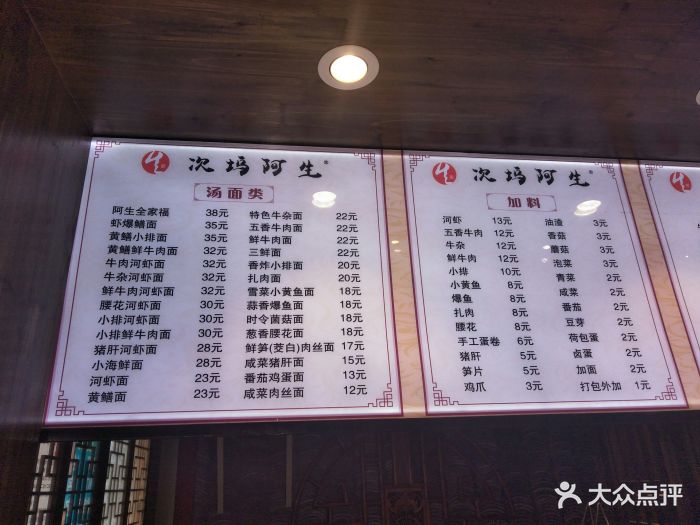 生 次坞阿生®
汤面类
阿生全家福 38元
虾爆鳝面 35元
黄鳝小排面 35元
黄鳝鲜牛肉面 32元
牛肉河虾面 32元
牛杂河虾面 32元
鲜牛肉河虾面 32元
腰花河虾面 30元
小排河虾面 30元
小排鲜牛肉面 30元
猪肝河虾面 28元
小海鲜面 28元
河虾面 23元
黄鳝面 23元
特色牛杂面 22元
五香牛肉面 22元
鲜牛肉面 22元
三鲜面 22元
香炸小排面 20元
扎肉面 20元
雪菜小黄鱼面 18元
蒜香爆鱼面 18元
时令菌菇面 18元
葱香腰花面 18元
鲜笋(茭白)肉丝面 17元
咸菜猪肝面 15元
番茄鸡蛋面 13元
咸菜肉丝面 12元
生 次坞阿生®
加料
河虾 13元
五香牛肉 12元
牛杂 12元
鲜牛肉 12元
小排 10元
小黄鱼 8元
爆鱼 8元
扎肉 8元
腰花 8元
手工蛋卷 6元
猪肝 5元
笋片 5元
鸡爪 3元
油渣 3元
香菇 3元
蘑菇 3元
泡菜 3元
青菜 2元
咸菜 2元
番茄 2元
豆芽 2元
荷包蛋 2元
卤蛋 2元
加面 2元
打包外加 1元
大众点评